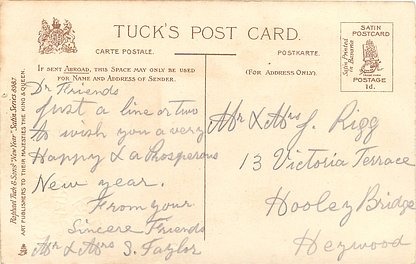 TUCK'S POST CARD.
CARTE POSTALE.
POSTKARTE.
IF SENT ABROAD, THIS SPACE MAY ONLY BE USED
FOR NAME AND ADDRESS OF SENDER.
(FOR ADDRESS ONLY).
SATIN
POSTCARD
Satin Printed
in Bavaria
POSTAGE
1d.
Raphael Tuck & Sons' "New Year"
ART PUBLISHERS TO THEIR MAJESTIES THE KING & QUEEN.
Dr Friends
Just a line or two
to wish you a very
Happy & a Prosperous
New year.
From your
Sincere Friends
Mr & Mrs S. Taylor
Mr & Mrs J. Rigg
13 Victoria Terrace
Hooley Bridge
Heywood